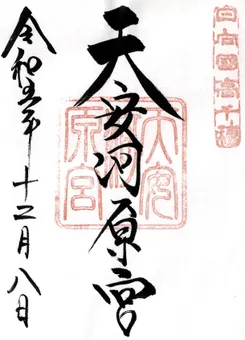 日向國高千穂
天安河原宮
天安河原宮
令和五年十二月八日